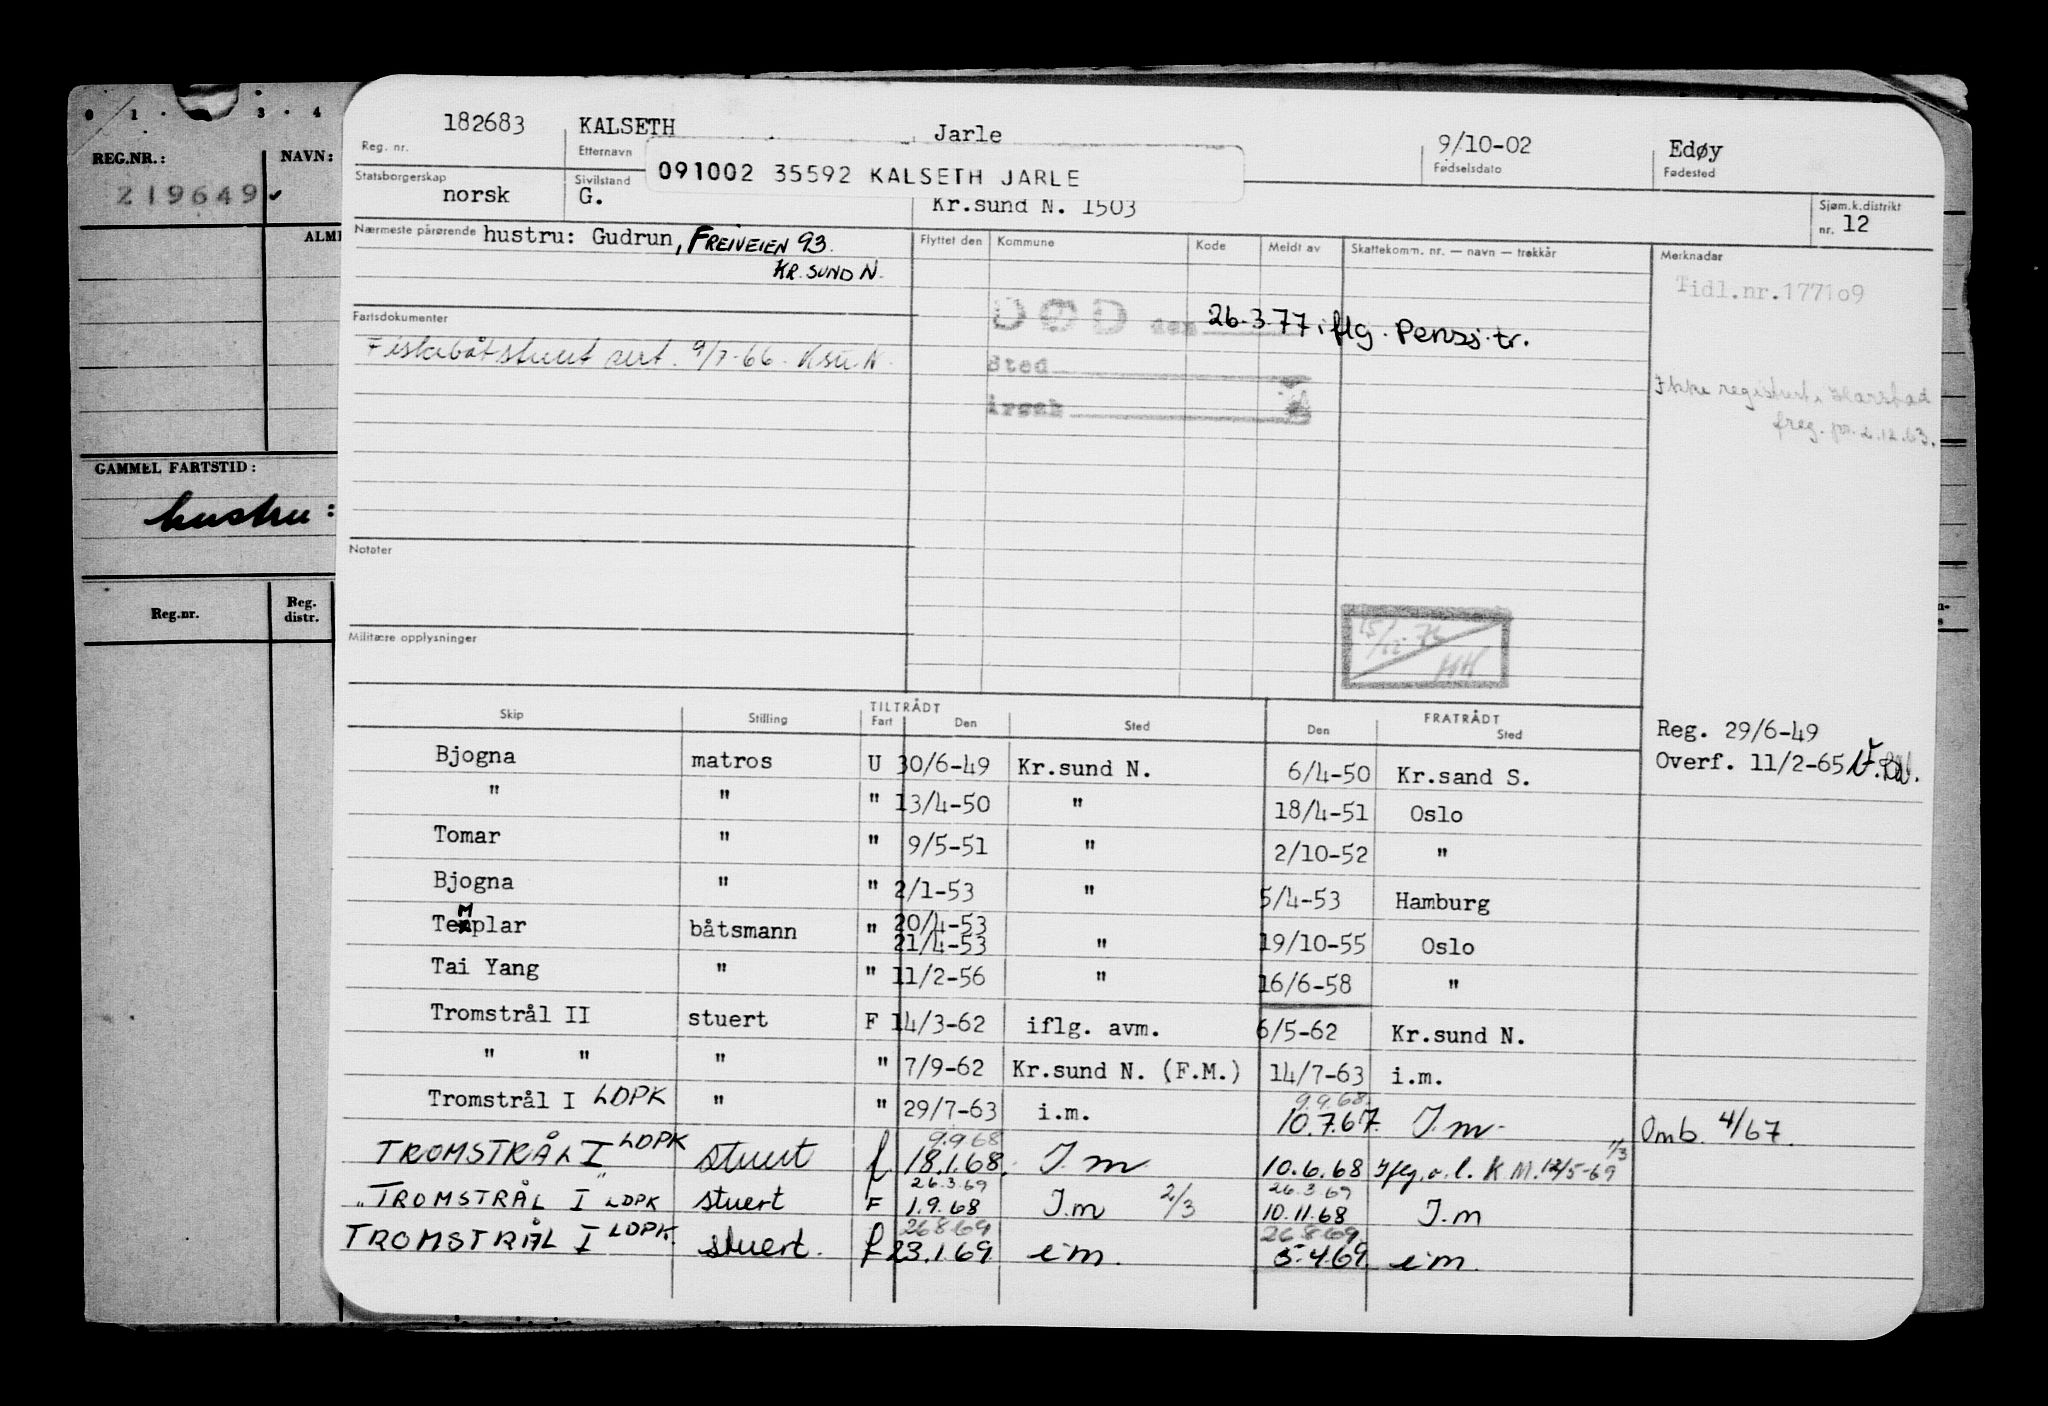 0 1 · 3 · 4
REG.NR.:
NAVN:
219649
GAMMEL FARTSTID:
hustru:
Reg.nr.
Reg. distr.
182683 KALSETH Jarle 9/10-02 Edøy
Reg. nr. Etternavn Fødselsdato Fødested
091002 35592 KALSETH JARLE
Statsborgerskap norsk Sivilstand G. Kr.sund N. 1503 Sjøm.k.distrikt nr. 12
Nærmeste pårørende hustru: Gudrun, FREIVEIEN 93.
KR. SUND N.
Flyttet den Kommune Kode Meldt av Skattekomm. nr. — navn — trekkår Merknadar
Tidl.nr.177109
DØD den 26.3.77 iflg. Pensj.tr.
Sted
Årsak
Fartsdokumenter
Fiskebåtstuert sert. 9/7-66 - Ksu N
Ikke registrert i Harstad
freg. pr. 2.12.63.
Notater
Militære opplysninger
15/12-76
HH
Skip Stilling TILTRÅDT Fart Den Sted FRATRÅDT Den Sted
Reg. 29/6-49
Overf. 11/2-65
Bjogna matros U 30/6-49 Kr.sund N. 6/4-50 Kr.sand S.
" " " 13/4-50 " 18/4-51 Oslo
Tomar " " 9/5-51 " 2/10-52 "
Bjogna " " 2/1-53 " 5/4-53 Hamburg
TeMplar båtsmann " 20/4-53
21/4-53 " 19/10-55 Oslo
Tai Yang " " 11/2-56 " 16/6-58 "
Tromstrål II stuert F 14/3-62 iflg. avm. 6/5-62 Kr.sund N.
" " " " 7/9-62 Kr.sund N. (F.M.) 14/7-63 i.m.
9.9.68.
Tromstrål I LDPK " " 29/7-63 i.m. 10.7.67. I.m. Omb. 4/67.
9.9.68
TROMSTRÅL I LDPK stuert f 18.1.68. I.m 10.6.68 Iflg. o. l. K M. 12/5-69 1/3
26.3.69 26.3.69
" TROMSTRÅL I LDPK stuert F 1.9.68 I.m 2/3 10.11.68 I.m
26869 26869
TROMSTRÅL I LDPK. stuert. f 23.1.69 i m. 5.4.69 i m.